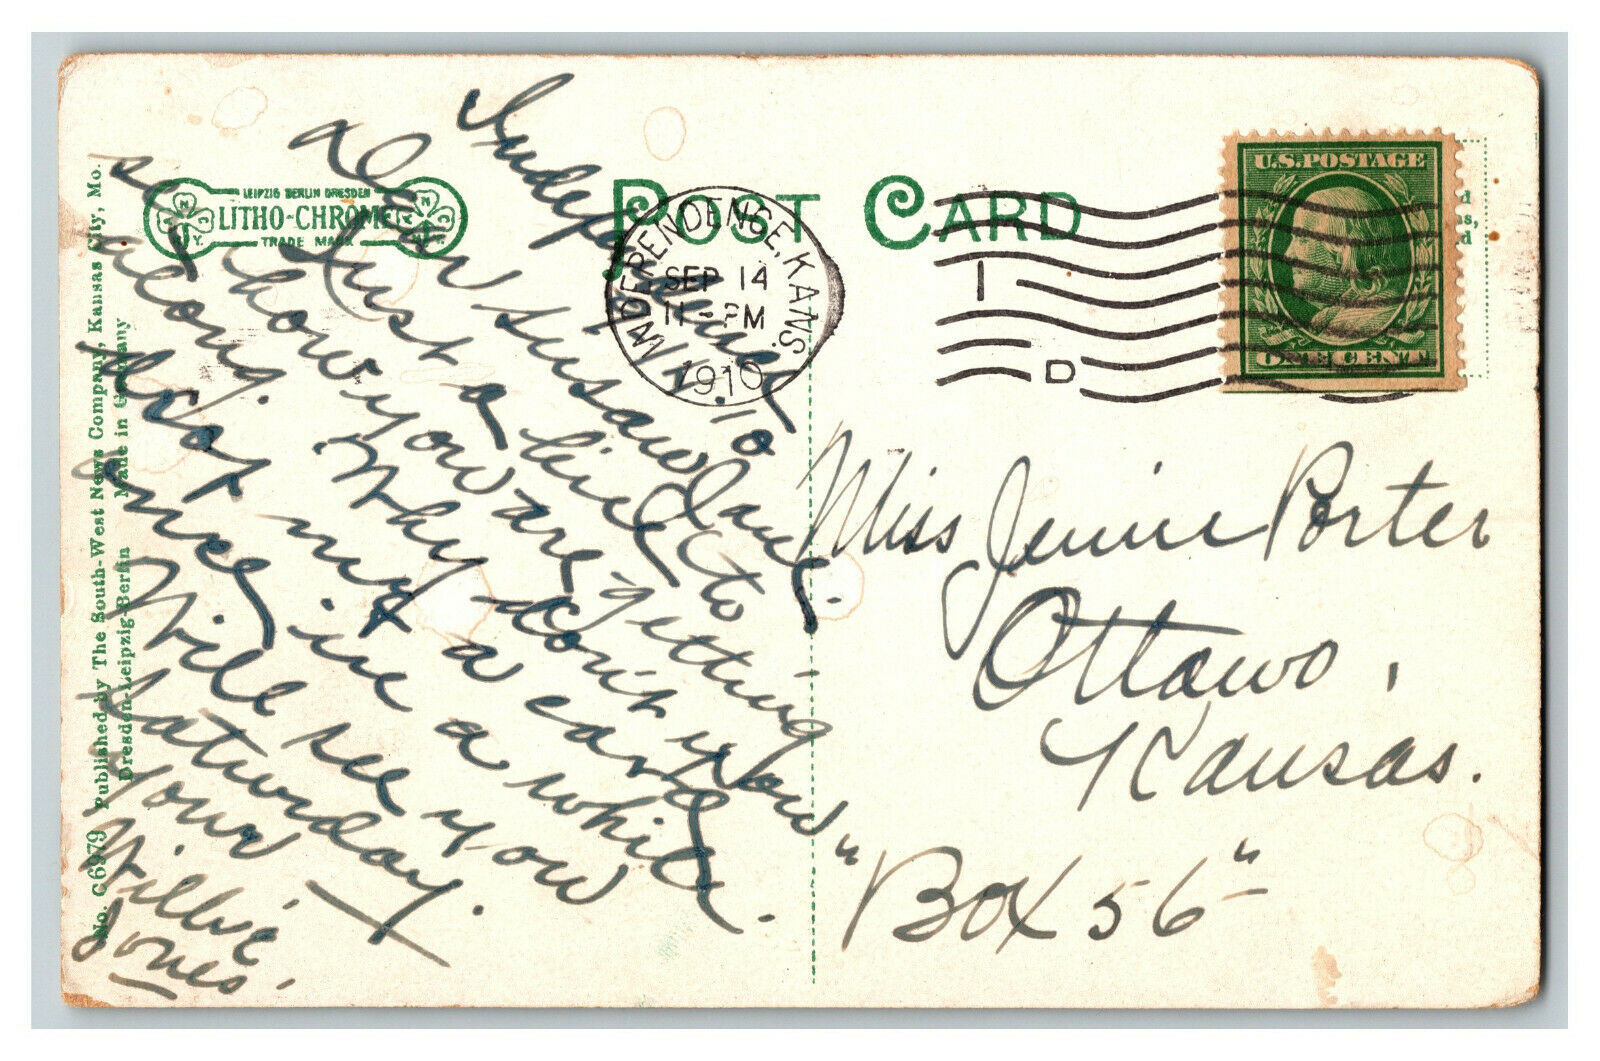 POST CARD
LEIPZIG BERLIN DRESDEN
LITHO-CHROME
TRADE MARK
No. C6979 Published by The South-West News Company, Kansas City, Mo.
Dresden-Leipzig-Berlin Made in Germany
INDEPENDENCE, KANS.
SEP 14
11-PM
1910
1
D
U.S. POSTAGE
ONE CENT
Dear Susan Jane.
Just a line to
see how you are getting
along. Why don't you
drop my a card
once in a while.
Will see you
Saturday.
Your
Willie
Jones.
Miss Jennie Porter
Ottawa,
Kansas.
"Box 56"